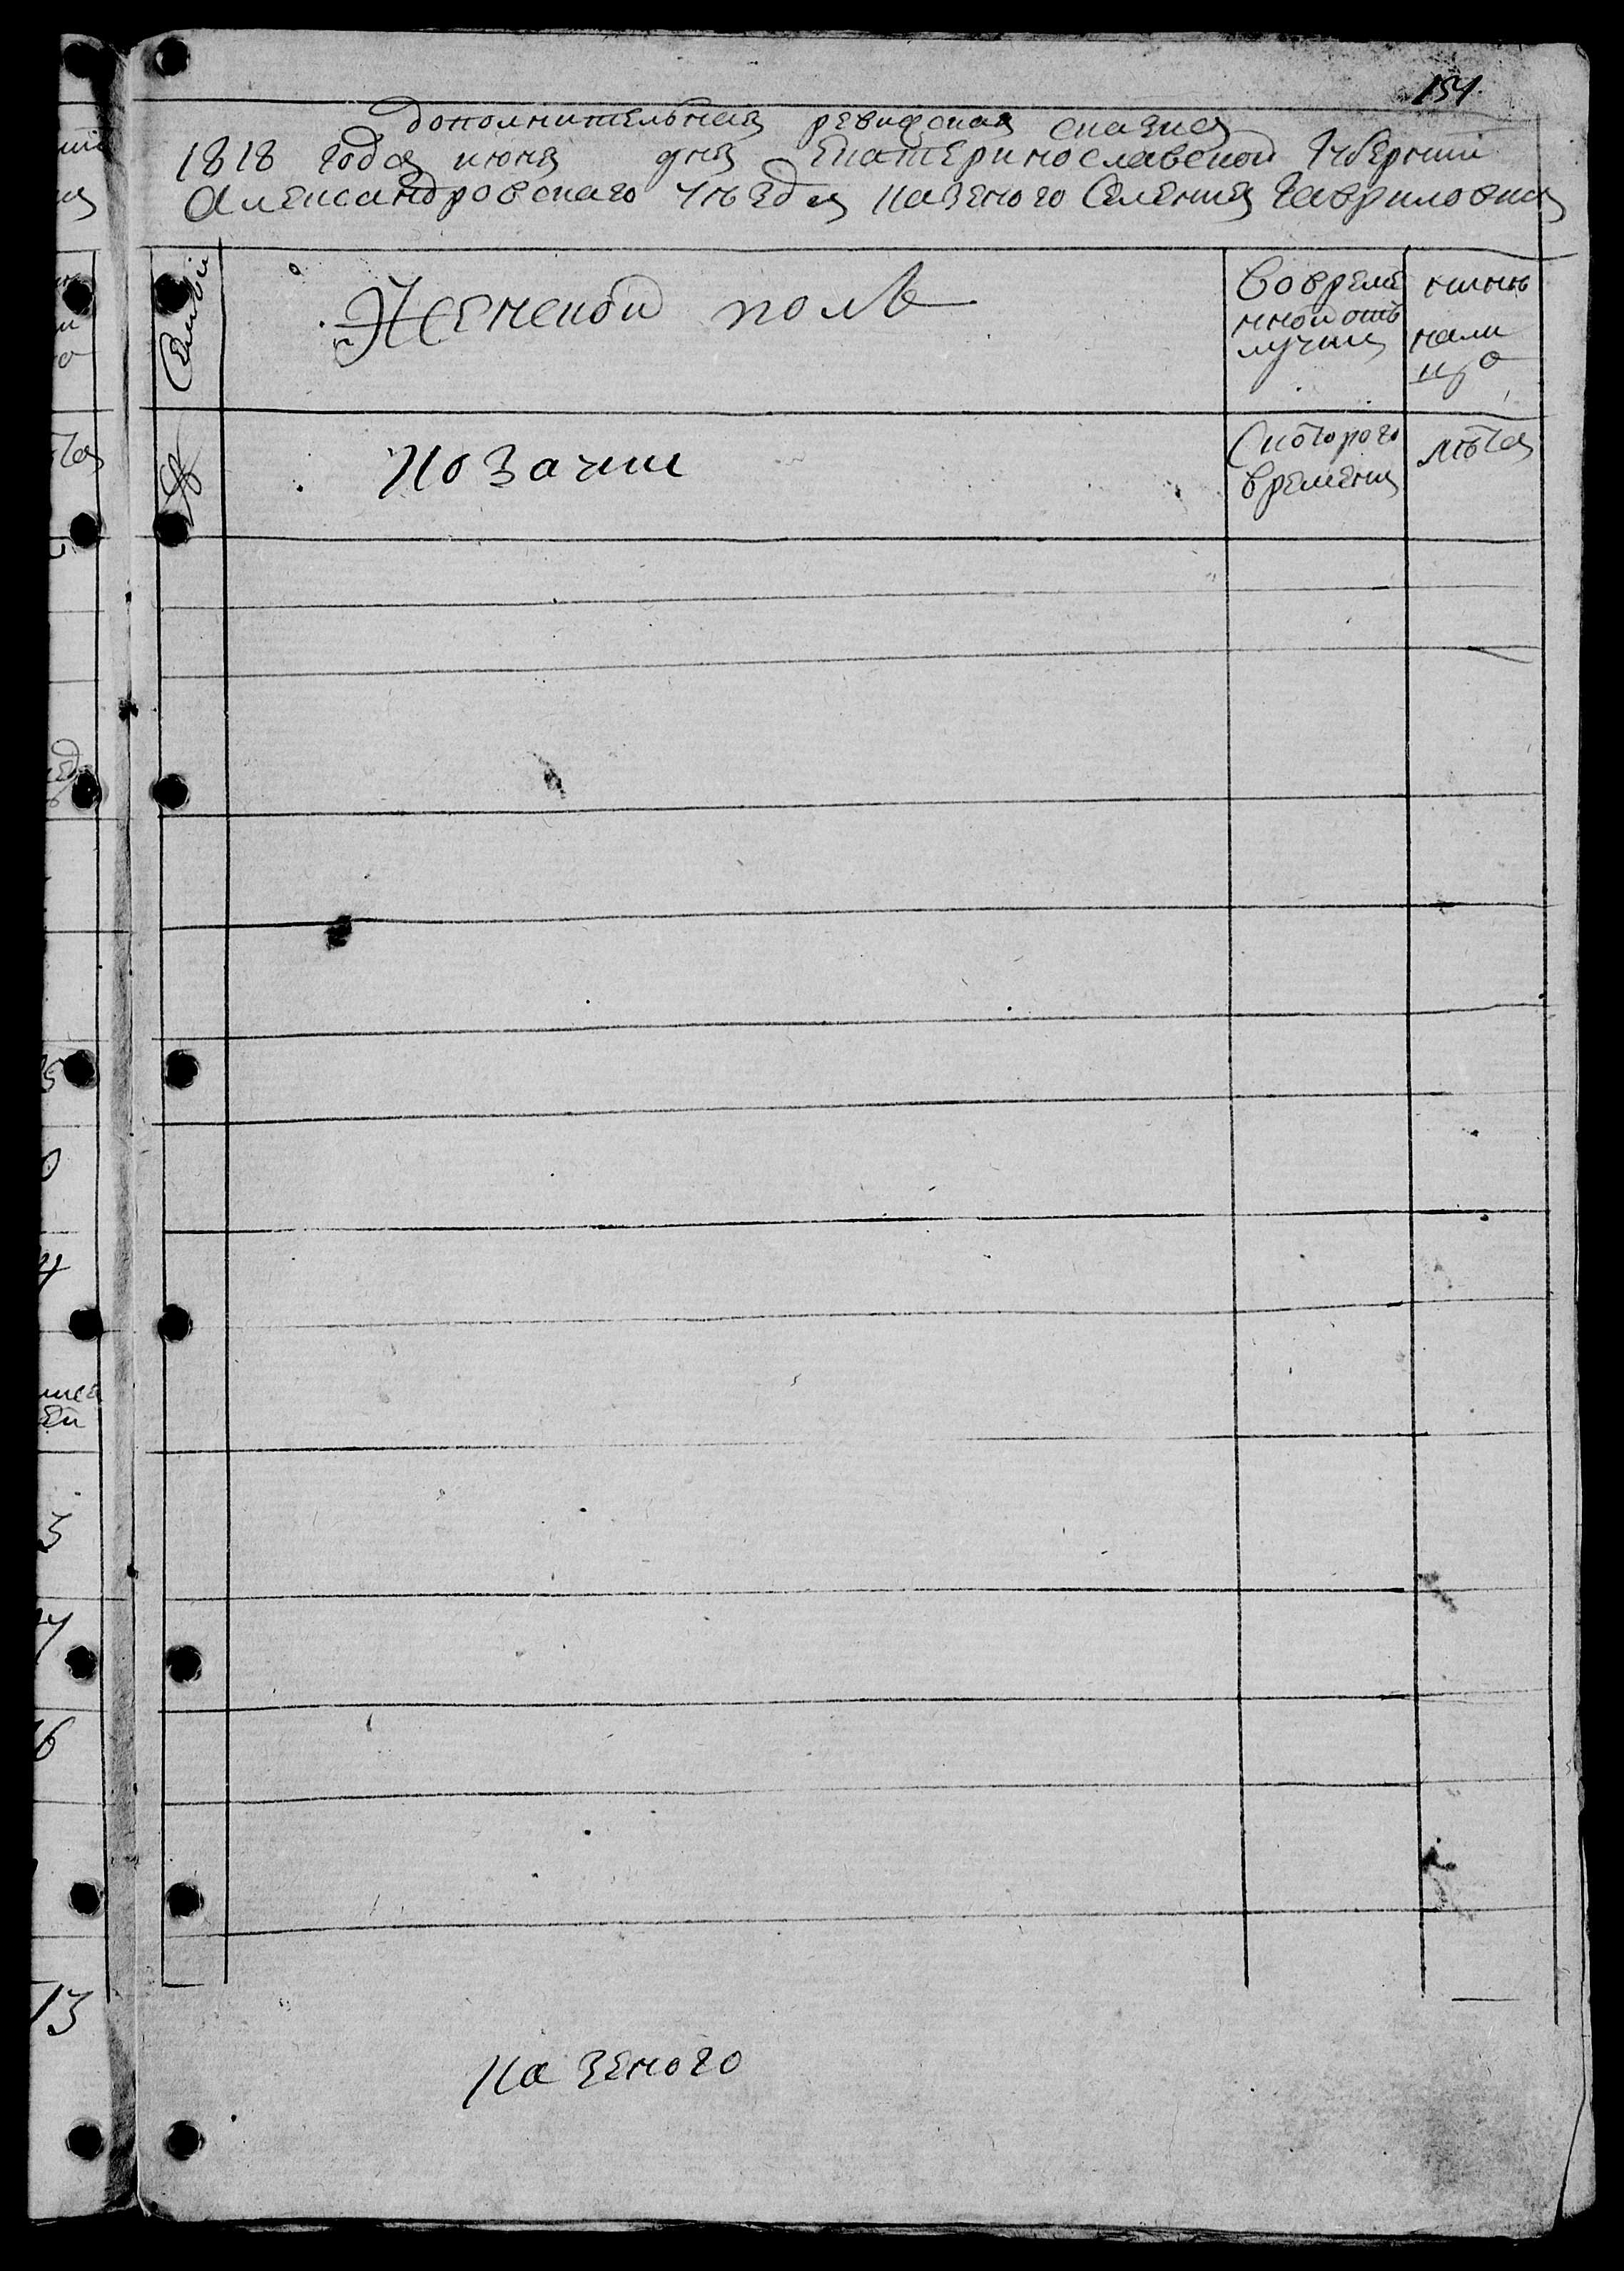 154
дополнителная ревиская сказка
1818 года июня дня Екатеринославской Губернии
Александровского уезда казеного Селения Гавриловки
Семьи
Женской полъ
Вовреме
нной отъ
лучки
нынѣ
нали
цо
№
Козачки
Скоторого
времени
лѣта
казеного